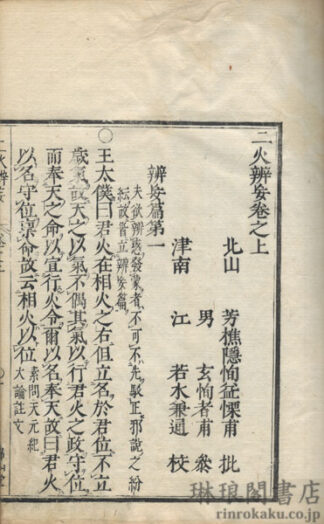 二火辨妄卷之上
北山 芳樵隱恂益慄甫 批
男 玄恂者甫 叅
津南 江 若水兼通 校
辨妄篇第一
夫欲辨惑發蒙者不可不先駁正邪說之紛
紜故首立辨妄篇
○王太僕曰君火在相火之右但立名於君位不立
歲氣故天之以氣不偶其氣以行君火之政守位
而奉天之命以宣行火令爾以名奉天故曰君火
以名守位稟命故云相火以位 素問天元紀
大論註文
二火辨妄
琳琅閣書店
rinrokaku.co.jp